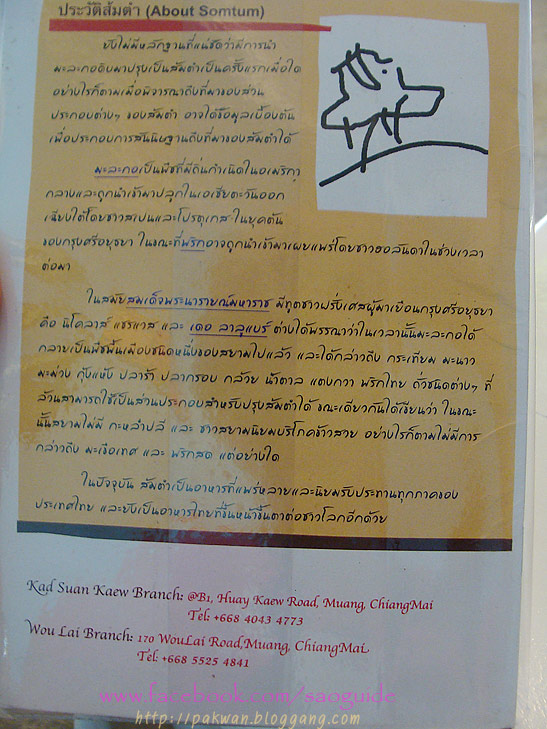 ประวัติส้มตำ (About Somtum)
ยังไม่มีหลักฐานที่แน่ชัดว่ามีการนำ
มะละกอดิบมาปรุงเป็นส้มตำเป็นครั้งแรกเมื่อใด
อย่างไรก็ตามเมื่อพิจารณาถึงที่มาของส่วน
ประกอบต่างๆ ของส้มตำ อาจได้ข้อมูลเบื้องต้น
เพื่อประกอบการสันนิษฐานถึงที่มาของส้มตำได้
มะละกอเป็นพืชที่มีถิ่นกำเนิดในอเมริกา
กลางและถูกนำเข้ามาปลูกในเอเชียตะวันออก
เฉียงใต้โดยชาวสเปนและโปรตุเกส ในยุคต้น
ของกรุงศรีอยุธยา ในขณะที่พริกอาจถูกนำเข้ามาเผยแพร่โดยชาวฮอลันดาในช่วงเวลา
ต่อมา
ในสมัยสมเด็จพระนารายณ์มหาราช มีทูตชาวฝรั่งเศสผู้มาเยือนกรุงศรีอยุธยา
คือ นิโคลาส์ แชรแวส และ เดอ ลาลูแบร์ ต่างได้พรรณาว่าในเวลานั้นมะละกอได้
กลายเป็นพืชพื้นเมืองชนิดหนึ่งของสยามไปแล้ว และได้กล่าวถึง กระเทียม มะนาว
มะม่วง กุ้งแห้ง ปลาร้า ปลากรอบ กล้วย น้ำตาล แตงกวา พริกไทย ถั่วชนิดต่างๆ ที่
ล้วนสามารถใช้เป็นส่วนประกอบสำหรับปรุงส้มตำได้ ขณะเดียวกันได้เขียนว่า ในขณะ
นั้นสยามไม่มี กะหล่ำปลี และ ชาวสยามนิยมบริโภคข้าวสวย อย่างไรก็ตามไม่มีการ
กล่าวถึง มะเขือเทศ และ พริกสด แต่อย่างใด
ในปัจจุบัน ส้มตำเป็นอาหารที่แพร่หลายและนิยมรับประทานทุกภาคของ
ประเทศไทย และยังเป็นอาหารไทยที่ขึ้นหน้าขึ้นตาต่อชาวโลกอีกด้วย
Kad Suan Kaew Branch: @B1, Huay Kaew Road, Muang, ChiangMai
Tel: +668 4043 4773
Wou Lai Branch: 170 WouLai Road,Muang, ChiangMai.
Tel: +668 5525 4841
www.facebook.com/saoguide
http://pakwan.bloggang.com